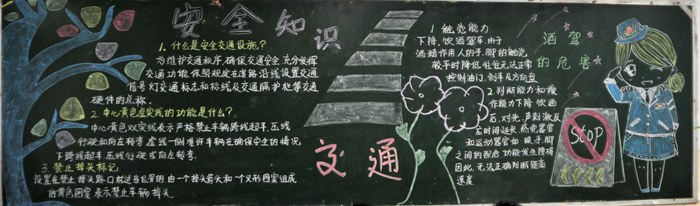 安全知识
1.什么是安全交通设施？
为维护交通秩序，确保交通安全，充分发挥
交通功能，依照规定在道路沿线设置交通
信号灯、交通标志和标线及交通隔护栏等交通
硬件的总称。
2.中心黄色虚实线的功能是什么？
中心黄色双实线表示严格禁止车辆跨线超车、压线
行驶和向左转弯，虚线一侧准许车辆在确保安全的情况
下跨线超车、压线行驶或向左转弯。
3.禁止掉头标记
设置在禁止掉头路口
由一个掉头箭头和一个叉形图案组成
的黄色图案，表示禁止车辆掉头。
交通
酒驾的危害
1.触觉能力
下降，饮酒驾车由于
酒精作用，人的手、脚的触觉
较平时降低，往往无法正常
控制油门、刹车及方向盘
2.判断能力和操
作能力下降，饮酒
后，对光、声刺激反
应时间延长，感觉器官
和运动器官如眼手脚
之间的配合功能发生障碍
因此，无法正确判断距离
速度
STOP